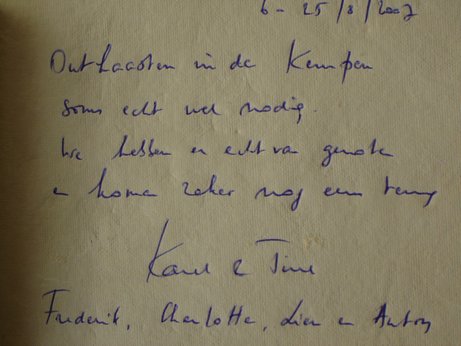 6 - 25/8/2007
Onthaasten in de Kempen
soms echt wel nodig.
We hebben er echt van genoten
en komen zeker nog eens terug
Karel & Tine
Frederik, Charlotte, Lien en Anton